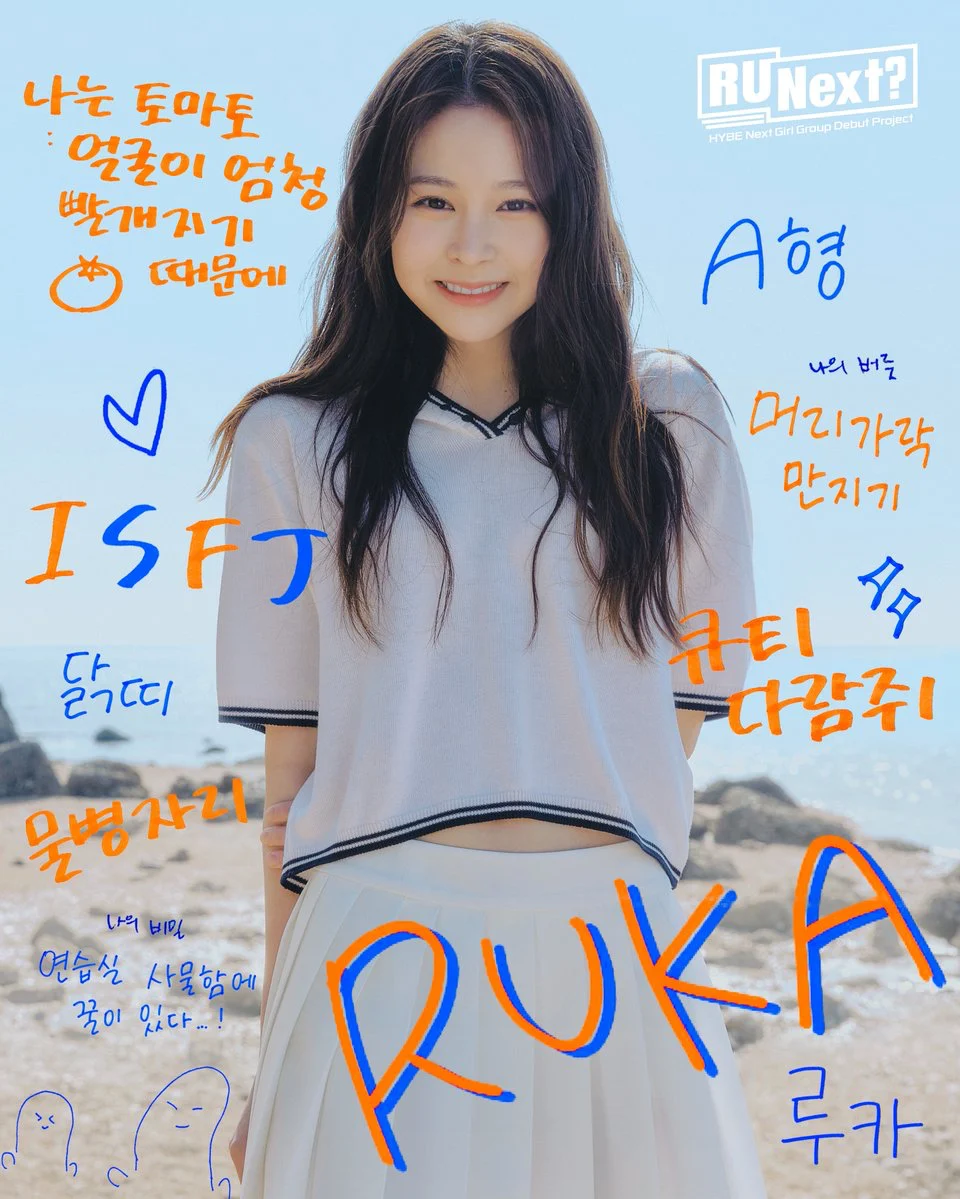 RU Next?
HYBE Next Girl Group Debut Project
나는 토마토
: 얼굴이 엄청
빨개지기
때문에
A형
나의 버릇
머리가락
만지기
ISFJ
큐티
다람쥐
닭띠
물병자리
나의 비밀
연습실 사물함에
꿀이 있다...!
RUKA
루카